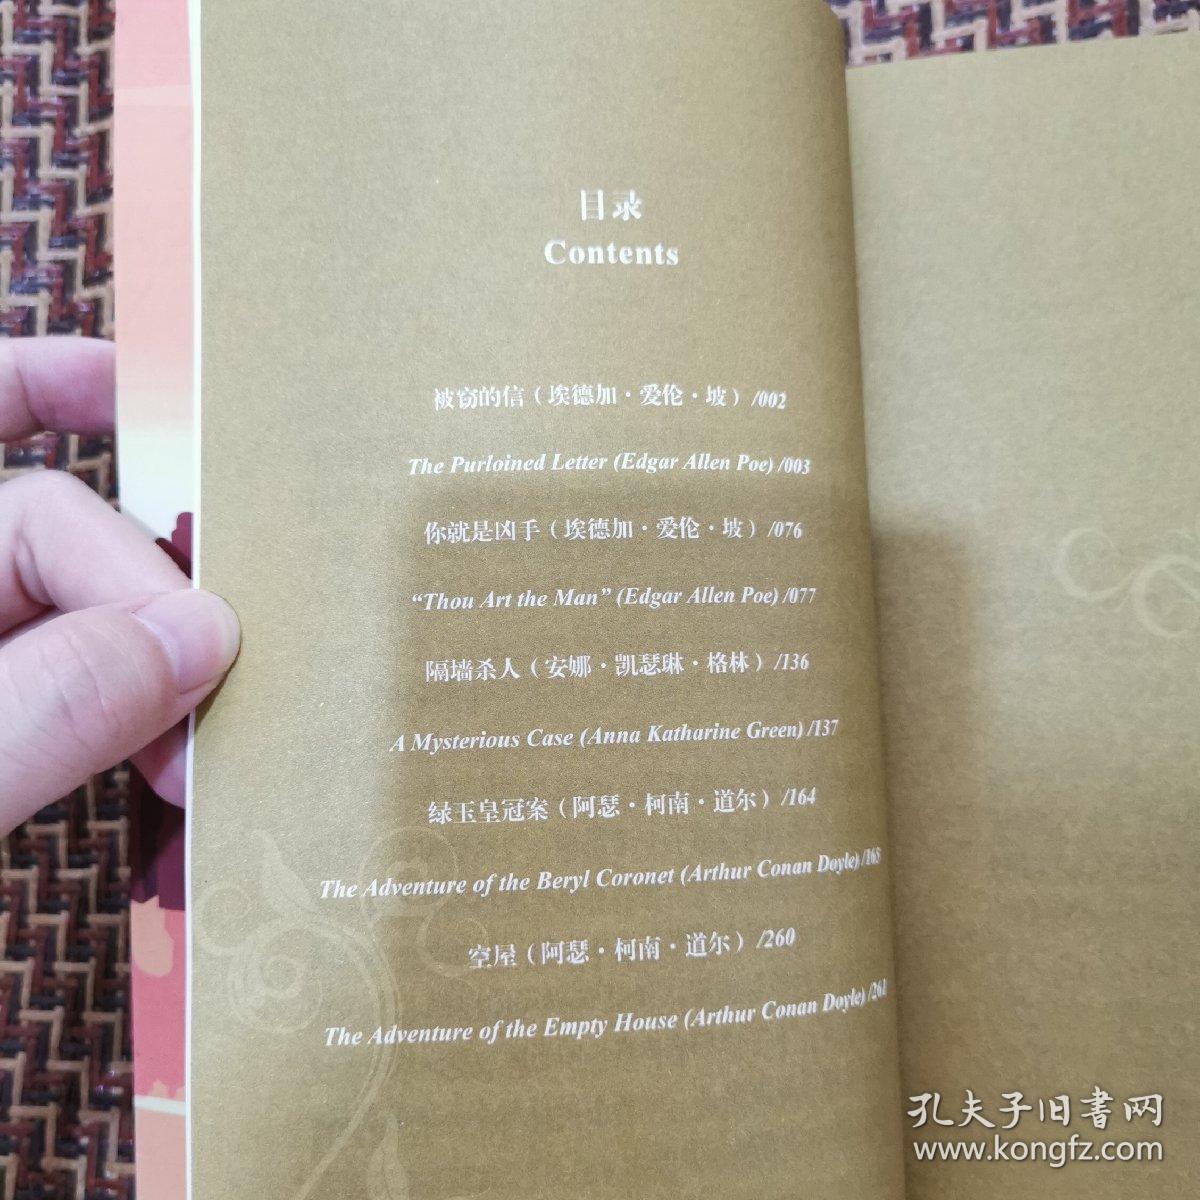 目录
Contents
被窃的信（埃德加·爱伦·坡）/002
The Purloined Letter (Edgar Allen Poe) /003
你就是凶手（埃德加·爱伦·坡）/076
“Thou Art the Man” (Edgar Allen Poe) /077
隔墙杀人（安娜·凯瑟琳·格林）/136
A Mysterious Case (Anna Katharine Green) /137
绿玉皇冠案（阿瑟·柯南·道尔）/164
The Adventure of the Beryl Coronet (Arthur Conan Doyle) /165
空屋（阿瑟·柯南·道尔）/260
The Adventure of the Empty House (Arthur Conan Doyle) /261
孔夫子旧書网
www.kongfz.com